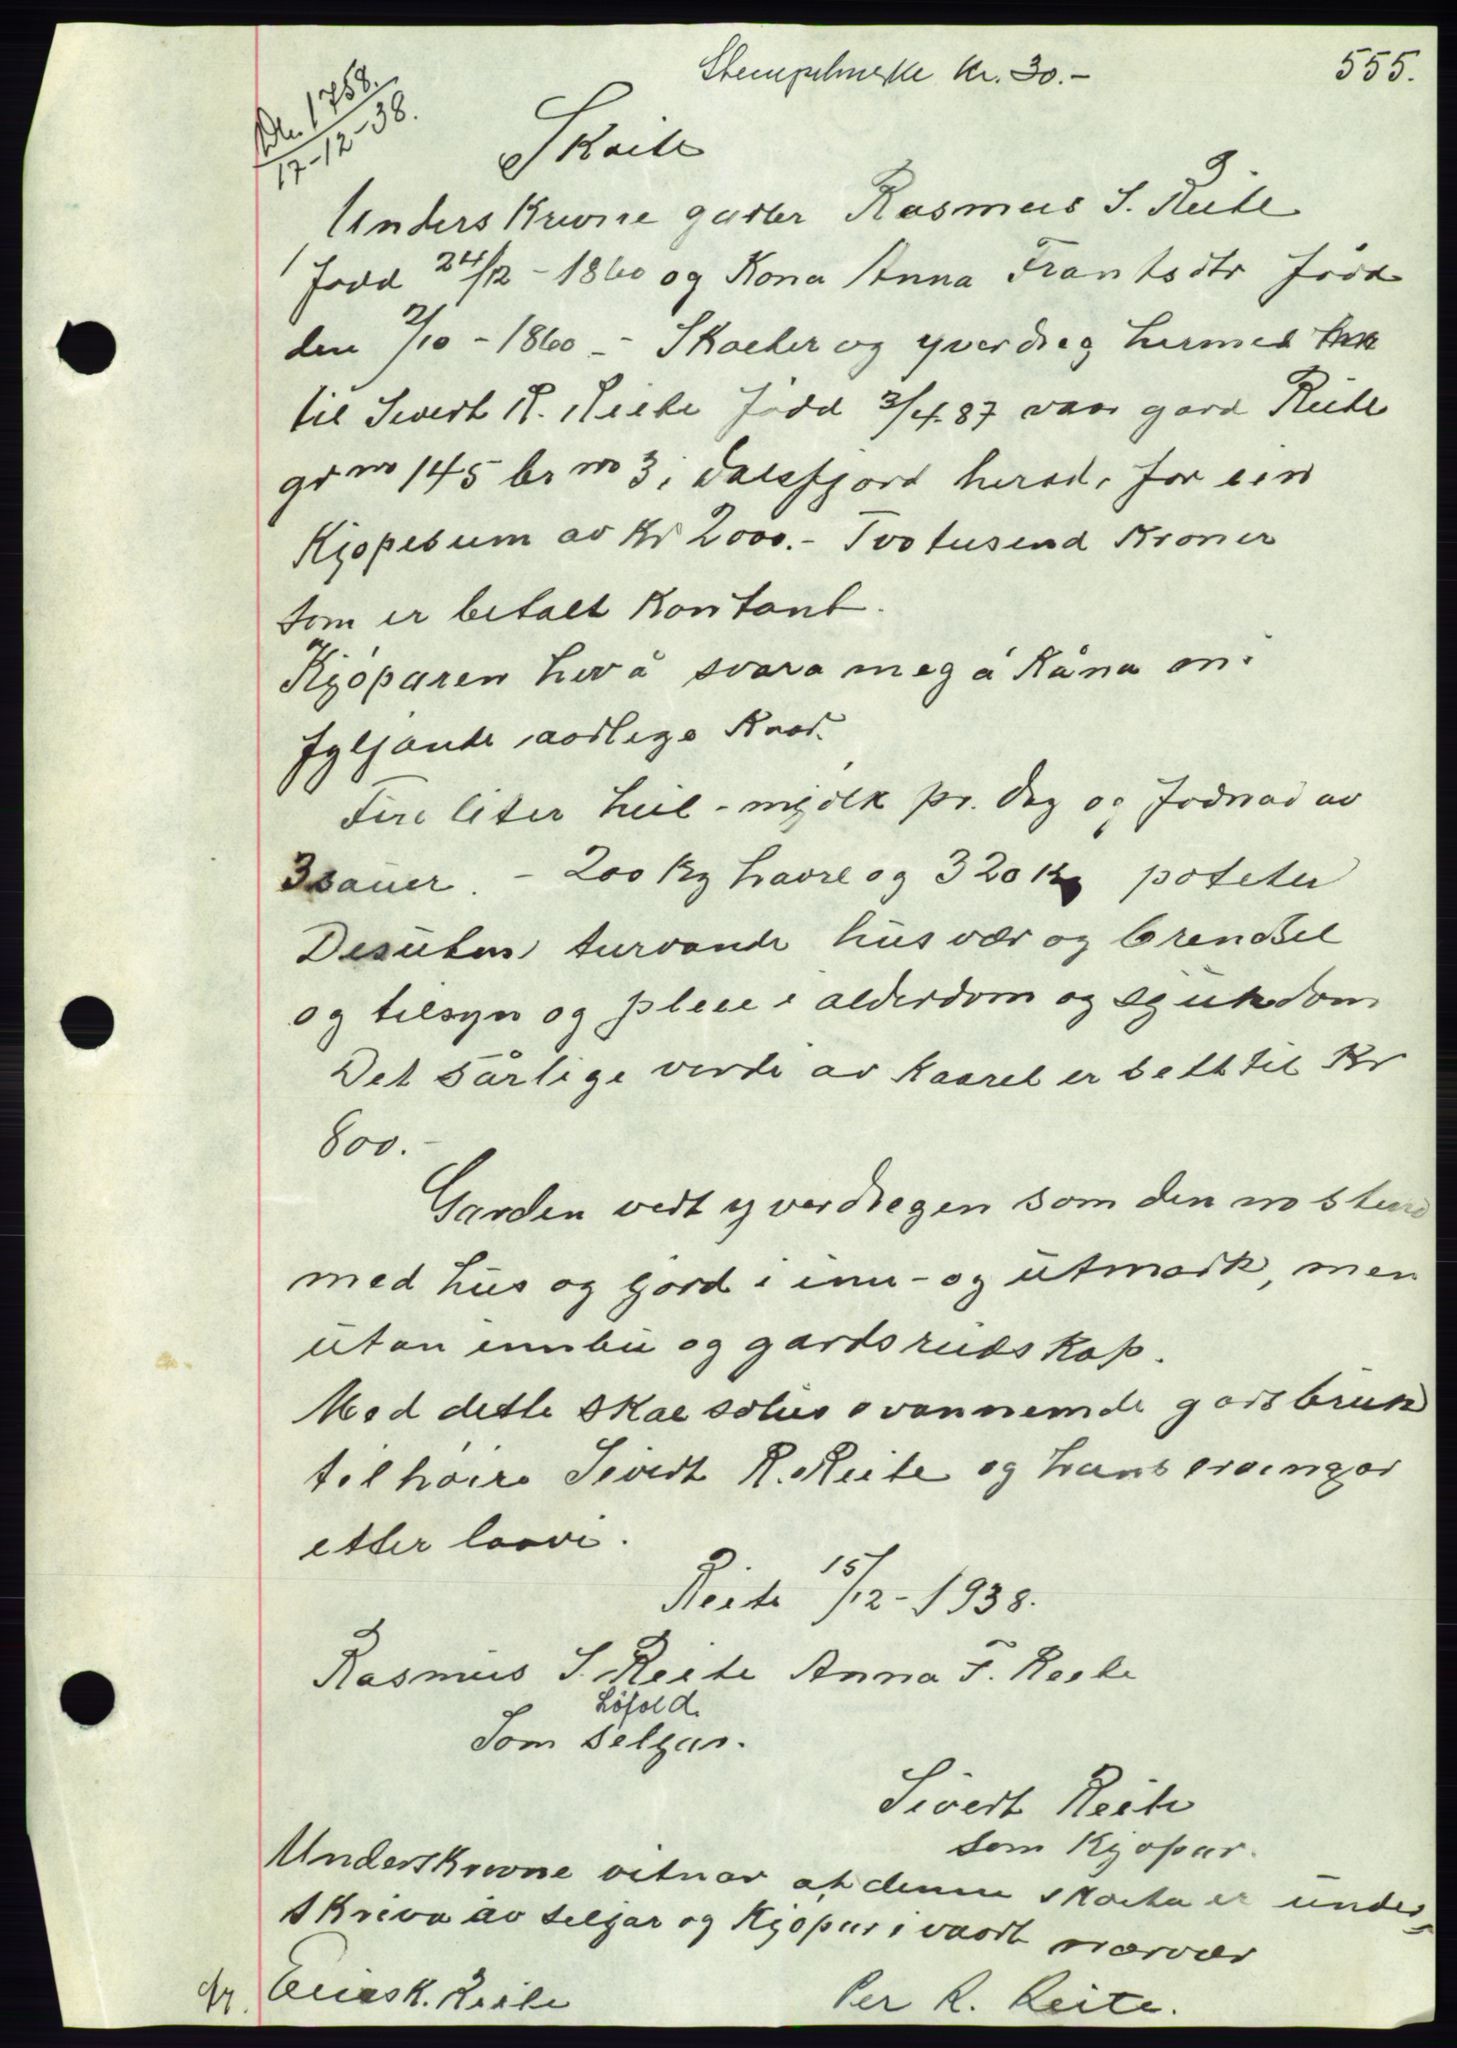 Stempelmerke kr. 30.- 555.
Dbn. 1758.
17-12-38.
Skøite
Underskrivne garder Rasmus S. Reite
født 24/12 - 1860 og Kona Anna Frantsdtr født
den 2/10 - 1860 - - Skøiter og yverdreg hermed
til Sivert R. Reite født 3/4.87 vaar gard Reite
gr no 145 br no 3 i Dalsfjord herad, for ein
Kjøpesum av Kr 2000.- Tvotusend Kroner
som er betalt Kontant.
Kjøparen hev å svara meg å Kåna mi
fyljande aarlege Kaar.
Fire liter heil-mjølk pr. dag og fødnad av
3 sauer. - 200 Kg havre og 320 Kg poteter
Desuten turvande husvær og brendsel
og tilsyn og pleie i alderdom og sjukdom
Det sårlige verdi av Kaaret er sett til Kr
800.-
Garden vert yverdregen som den no stend
med hus og jord i inn- og utmark, men
utan innbu og gardsreidskap.
Med dette skal solus ovannemde gardsbruk
tilhøire Sivert R. Reite og hans ervingar
etter laavi.
Reite 15/12 - 1938.
Rasmus S. Reite Anna F. Reite
Løfold.
Som seljar.
Sivert Reite
som Kjøpar.
Underskrivne vitnar at denne skøita er under-
skriva av seljar og Kjøpar i vaart nærvær
Elias K. Reite Per R. Reite.